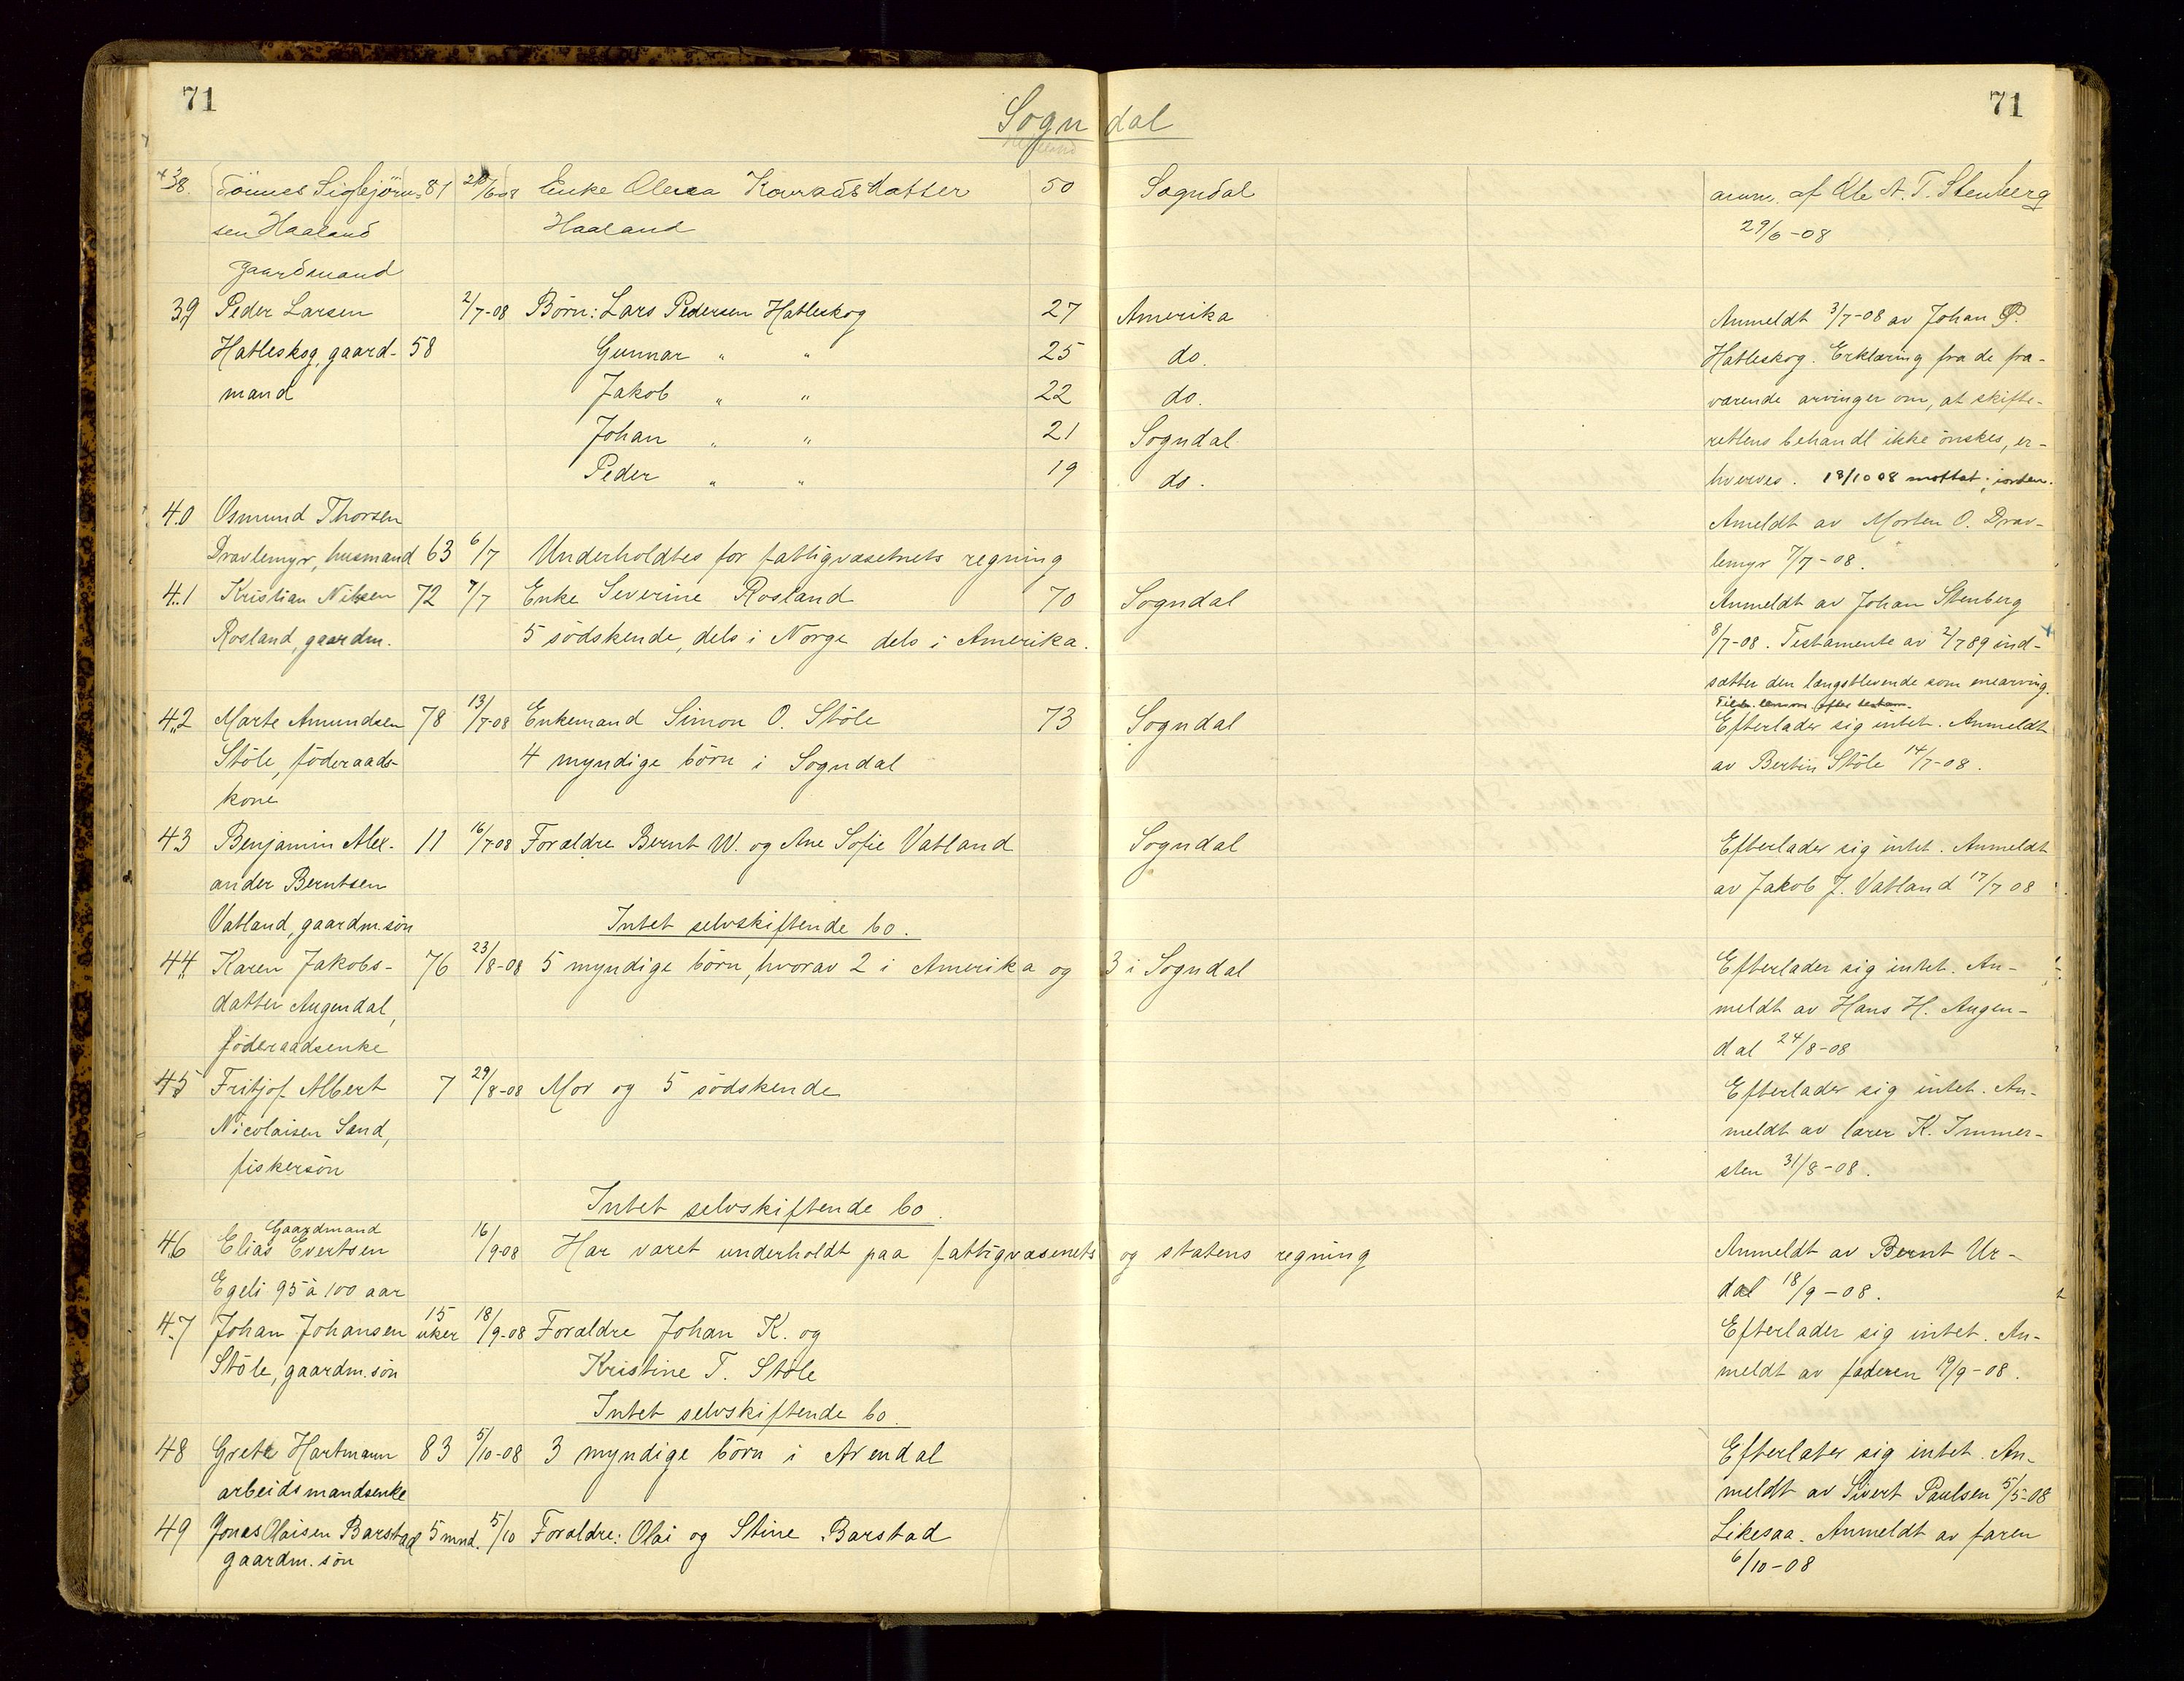 71
Sogndal
71
38. Tönnes Sigbjörn- 81 28/6-08 Enke Olena Konradsdatter 50 Sogndal anm. af Ole A. T. Stenberg
sen Haaland Haaland 29/6-08
gaardmand
39 Peder Larsen 2/7-08 Börn: Lars Pedersen Hatleskog 27 Amerika Anmeldt 3/7-08 av Johan P.
Hatleskog, gaard- 58 Gunnar " " 25 do. Hatleskog. Erklæring fra de fra-
mand Jakob " " 22 do. værende arvinger om, at skifte-
Johan " " 21 Sogndal rettens behandl ikke önskes, er-
Peder " " 19 do. hverves. 13/10 08 mottat; iorden.
40 Osmund Thorsen Ameldt av Morten O. Drav-
Dravlemyr, husmand 63 6/7 Underholdtes for fattigvæsetnets regning lemyr 7/7-08.
41 Kristian Nilsen 72 7/7 Enke Severine Rosland 70 Sogndal Anmeldt av Johan Stenberg
Rosland, gaardm. 5 södskende, dels i Norge dels i Amerika. 8/7-08. Testamente av 2/7 89 ind-
sætter den længstlevende som enearving.
42 Marte Amundsen 78 13/7-08 Enkemand Simon O. Stöle 73 Sogndal Efterlader sig intet. Anmeldt
Stöle, föderaads- 4 myndige börn i Sogndal av Bertin Stöle 14/7-08.
kone
43 Benjamin Alex- 11 16/7 08 Forældre Bernt W. og Ane Sofie Vatland Sogndal Efterlader sig intet. Anmeldt
ander Berntsen av Jakob J. Vatland 17/7 08
Vatland, gaardm. sön Intet selvskiftende bo.
44 Karen Jakobs- 76 23/8-08 5 myndige börn, hvorav 2 i Amerika og 3 i Sogndal Efterlader sig intet. An-
datter Augendal, meldt av Hans H. Augen-
föderaadsenke dal 24/8-08
45 Fritjof Albert 7 29/8-08 Mor og 5 södskende Efterlader sig intet. An-
Nicolaisen Sand, meldt av lærer K. Immer-
fiskersön sten 31/8-08.
Intet selvskiftende bo.
Gaardmand
46 Elias Evertsen 16/9-08 Har været underholdt paa fattigvæsenets og statens regning Anmeldt av Bernt Ur-
Egeli 95 à 100 aar dal 18/9-08.
47 Johan Johansen 15 uker 18/9-08 Forældre Johan K. og Efterlader sig intet. An-
Stöle, gaardm. sön Kristine T. Stöle meldt av faderen 19/9-08.
Intet selvskiftende bo.
48 Grete Hartmann 83 5/10-08 3 myndige börn i Arendal Efterlater sig intet. An-
arbeidsmandsenke meldt av Sivert Paulsen 5/5-08
49 Jonas Olaisen Barstad 5 mnd. 5/10 Forældre: Olai og Stine Barstad Likesaa. Anmeldt av faren
gaardm. sön 6/10-08